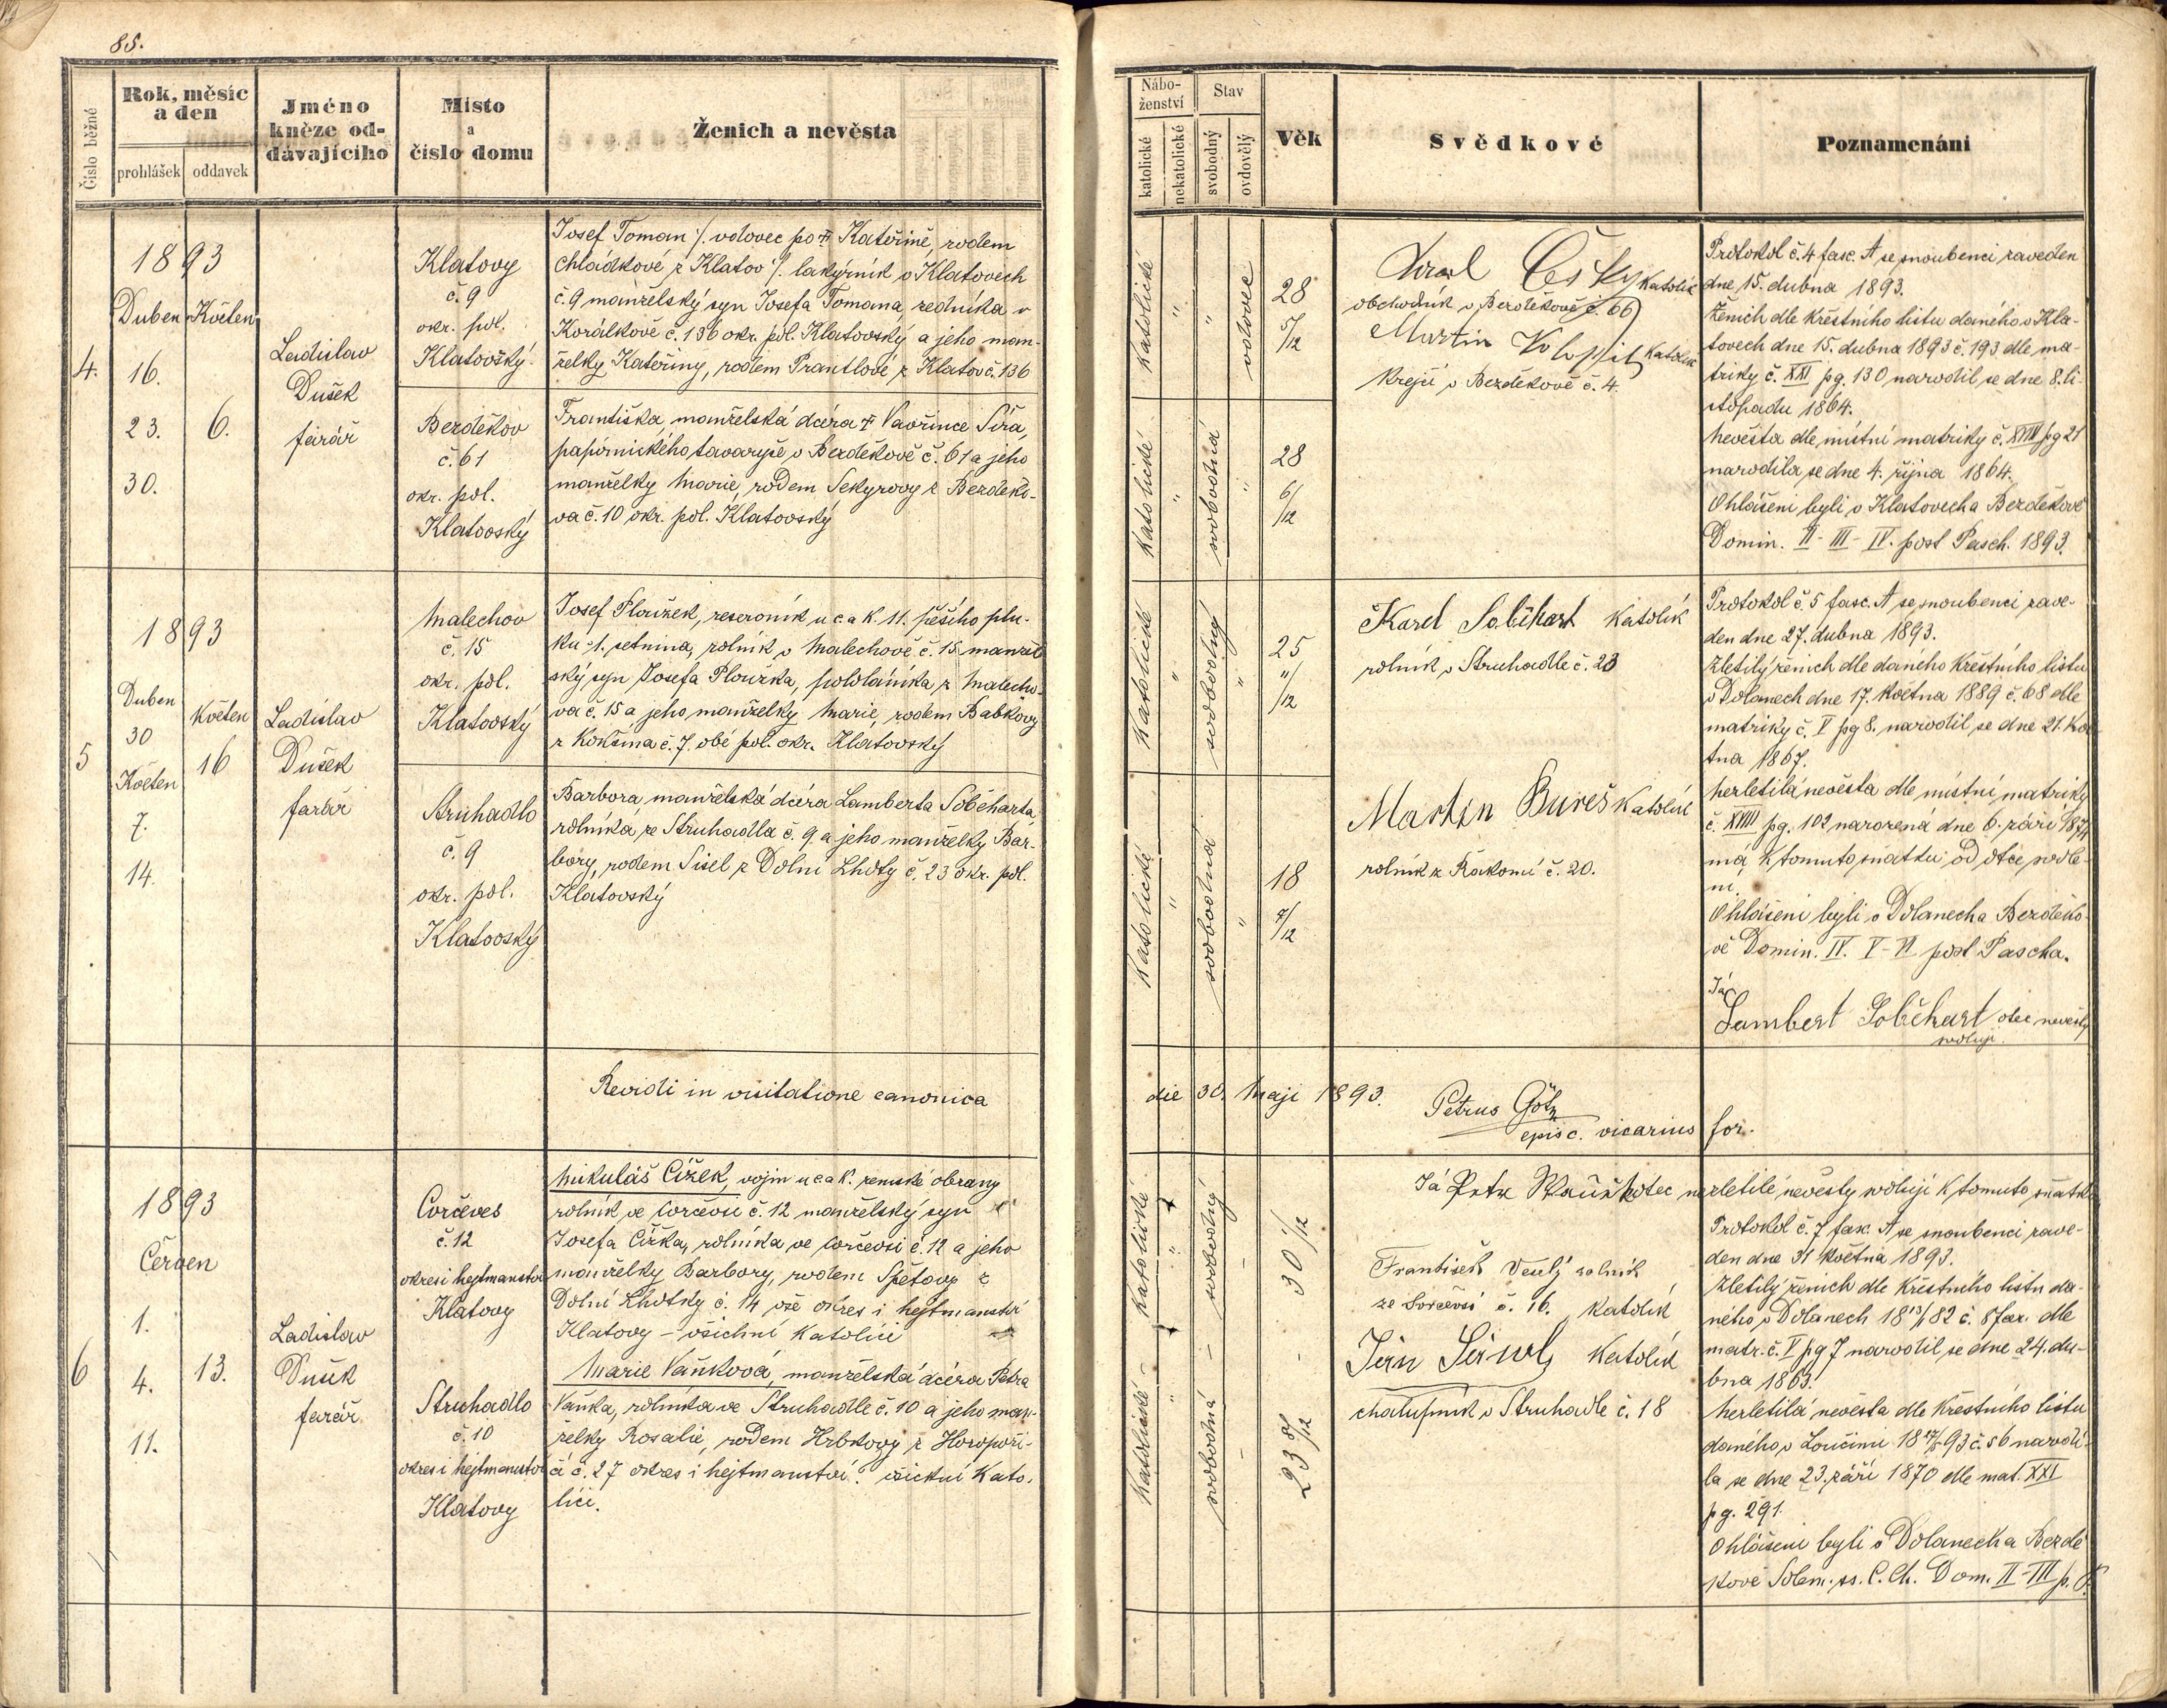 85.
Číslo běžné
Rok, měsíc
a den
prohlášek
oddavek
Jméno
kněze od-
dávajícího
Místo
a
číslo domu
Ženich a nevěsta
4.
1893
Duben
Květen
16.
23.
6.
30.
Ladislav
Dušek
farář
Klatovy
č. 9
okr. pol.
Klatovský
Josef Toman /. vdovec po † Kateřině, rodem
Chládkové z Klatov /. lakýrník v Klatovech
č. 9 manželský syn Josefa Tomana, zedníka v
Korálkově č. 136 okr. pol. Klatovský a jeho man-
želky Kateřiny, rodem Prantlové z Klatov č. 136
Bezděkov
č. 61
okr. pol.
Klatovský
Františka, manželská dcéra † Vavřince Šíra,
papírnického tovaryše v Bezděkově č. 61 a jeho
manželky Marie, rodem Sekyrovy z Bezděko-
va č. 10 okr. pol. Klatovský
5
1893
Duben
30
Květen
7.
14.
Květen
16
Ladislav
Dušek
farář
Malechov
č. 15
okr. pol.
Klatovský
Josef Ploužek, reservník u c a k. 11. pěšího plu-
ku 1. setnina, rolník v Malechově č. 15 manžel
ský syn Josefa Ploužka, pololáníka z Malecho-
va č. 15 a jeho manželky Marie, rodem Babkovy
z Kokšína č. 7. obé pol. okr. Klatovský
Struhadlo
č. 9
okr. pol.
Klatovský
Barbora, manželská dcéra Lamberta Sobčharta
rolníka ze Struhadla č. 9. a jeho manželky Bar-
bory, rodem Sisel z Dolní Lhoty č. 23 okr. pol.
Klatovský
Revidi in visitatione canonica
6
1893
Červen
1.
4.
11.
13.
Ladislav
Dušek
farář
Corčeves
č. 12
okres i hejtmanství
Klatovy
Mikuláš Čížek, vojín u c a k. zemské obrany
rolník ve Corčevsi č. 12 manželský syn
Josefa Čížka, rolníka ve Corčevsi č. 12 a jeho
manželky Barbory, rodem Špětovy z
Dolní Lhotky č. 14 vše okres i hejtmanství
Klatovy – všichni katolíci
Struhadlo
č. 10
okres i hejtmanství
Klatovy
Marie Vaňková, manželská dcéra Petra
Vaňka, rolníka ve Struhadle č. 10 a jeho man-
želky Rosalie, rodem Hrbkovy z
č. 27 okres i hejtmanství všichni kato-
líci.
Nábo-
ženství
katolické
nekatolické
Stav
svobodný
ovdovělý
Věk
Svědkové
Poznamenání
katolické
"
"
vdovec
28
5/12
Karel Český katolík
obchodník v Bezděkově č. 66)
Martin katolík
krejčí v Bezděkově č. 4.
katolické
"
svobodná
"
28
6/12
Protokol č. 4 fasc. A se snoubenci zaveden
dne 15. dubna 1893.
Ženich dle křestního listu daného v Kla-
tovech dne 15. dubna 1893 č. 193 dle ma-
triky č. XXI pg. 130 narodil se dne 8. li-
stopadu 1864.
Nevěsta dle místní matriky č. XVIII pg 21
narodila se dne 4. října 1864.
Ohlášeni byli v Klatovech a Bezděkově
Domin. II - III - IV. post Pasch. 1893.
katolické
"
svobodný
"
25
11/12
Karel Sobčhart katolík
rolník v Struhadle č. 23
katolická
"
svobodná
"
18
7/12
Martin Bureš katolík
rolník z Rakomi č. 20.
Protokol č. 5 fasc. A se snoubenci zave-
den dne 27. dubna 1893.
Zletilý ženich dle daného křestního listu
v Dolanech dne 17. května 1889 č. 68 dle
matriky č. V pg 8. narodil se dne 21. kvě
tna 1867.
Nezletilá nevěsta dle místní matriky
č. XVIII pg. 102 narozená dne 6. září 1874
má k tomuto sňatku od otce svole-
ní.
Ohlášeni byli v Dolanech a Bezděko-
vě Domin. IV. V - VI post Pascha.
Já
Lambert Sobčhart otec nevěsty
svoluji
die 30. Maji 1893.
Petrus Götz
episc. vicarius for.
Já Petr Vaněk otec nezletilé nevěsty svoluji k tomuto sňatku
katolické
"
svobodný
–
30 1/12
František Veselý rolník
ze č. 16. katolík
katolické
"
svobodná
–
23 8/12
katolík
chalupník v Struhadle č. 18
Protokol č. 7 fasc. A se snoubenci zave-
den dne 31 května 1893.
Zletilý ženich dle křestního listu da-
ného v Dolanech dle
matr. č. V pg 7 narodil se dne 24. du-
bna 1863.
Nezletilá nevěsta dle křestního listu
daného v Loučimi č. 56 narodi-
la se dne 23. září 1870 dle mat. XXI
pg. 291.
Ohlášeni byli v Dolanech a Bezdě
kově Solem. ss. C. Ch. Dom. II - III p. P.